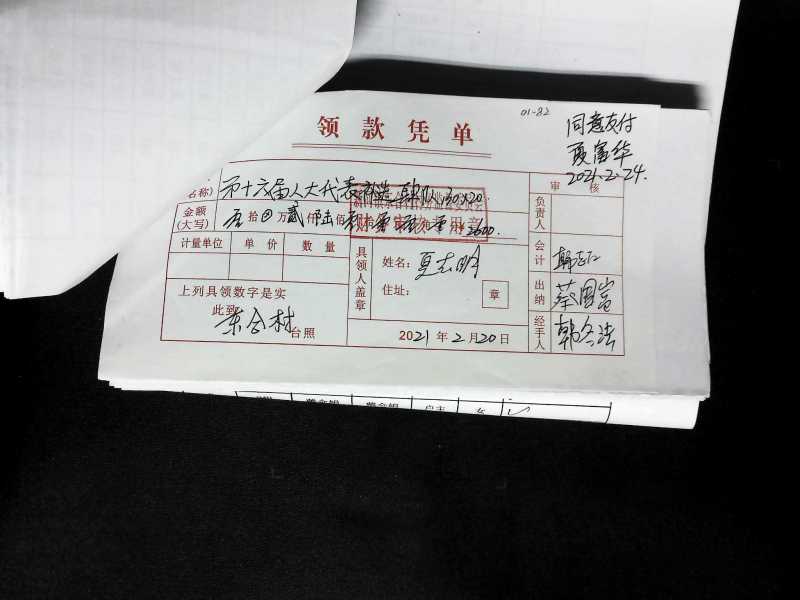 01-82
领款凭单
同意支付
夏富华
2021-2-24.
名称) 第十六届人大代表补选 130×20
审核
金额(大写) 拾 万贰仟陆佰 ¥2600.
负责人
计量单位 单价 数量
具领人盖章
姓名: 夏志明
会计 韩志仁
住址: 章
出纳 蔡国富
上列具领数字是实
此致
东合村 台照
2021年2月20日
经手人 韩冬法